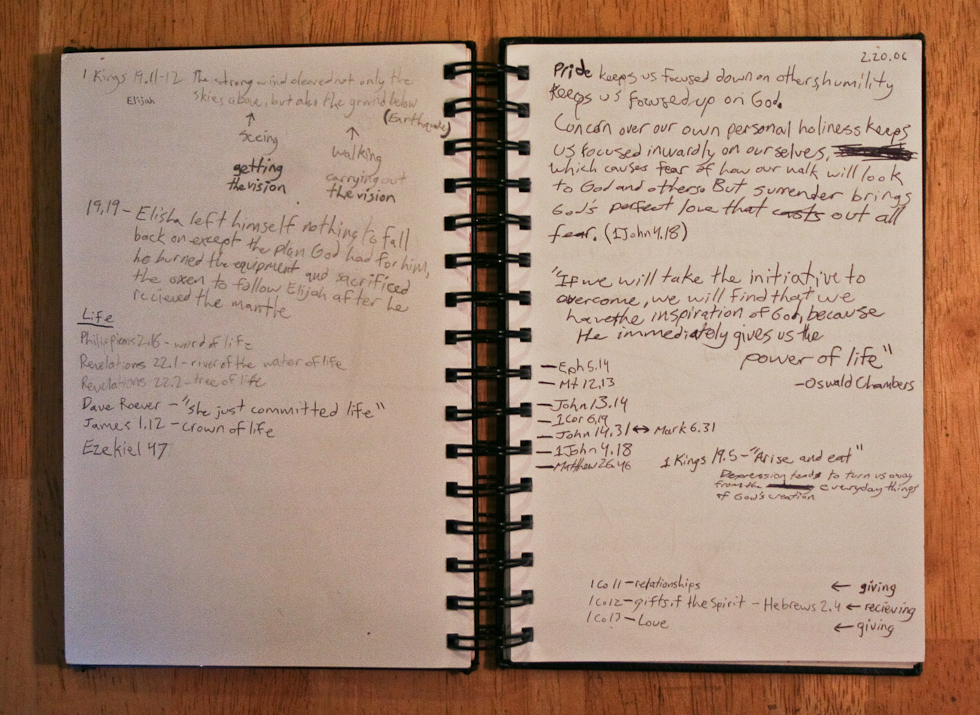 1 Kings 19.11-12 The strong wind cleaved not only the
Elijah skies above, but also the ground below
(Earthquake)
↑ ↑
seeing walking
getting carrying out
the vision the vision
19.19 - Elisha left himself nothing to fall
back on except the plan God had for him,
he burned the equipment and sacrificed
the oxen to follow Elijah after he
recieved the mantle
Life
Philippians 2.16 - word of life
Revelations 22.1 - river of the water of life
Revelations 22.2 - tree of life
Dave Roever - "she just committed life"
James 1.12 - crown of life
Ezekiel 47
2.20.06
Pride keeps us focused down on others, humility
keeps us focused up on God.
Concern over our own personal holiness keeps
us focused inwardly on ourselves,
which causes fear of how our walk will look
to God and others. But surrender brings
God's perfect love that casts out all
fear. (1John 4.18)
"If we will take the initiative to
overcome, we will find that we
have the inspiration of God, because
He immediately gives us the
power of life"
- Oswald Chambers
- Eph 5.14
- Mt 12.13
- John 13.14
- 1Cor 6.19
- John 14.31 ↔ Mark 6.31
- 1John 4.18
- Matthew 26.46
1 Kings 19.5 - "Arise and eat"
Depression tends to turn us away
from the everyday things
of God's creation
1Co11 - relationships ← giving
1Co12 - gifts of the Spirit - Hebrews 2.4 ← recieving
1Co13 - Love ← giving